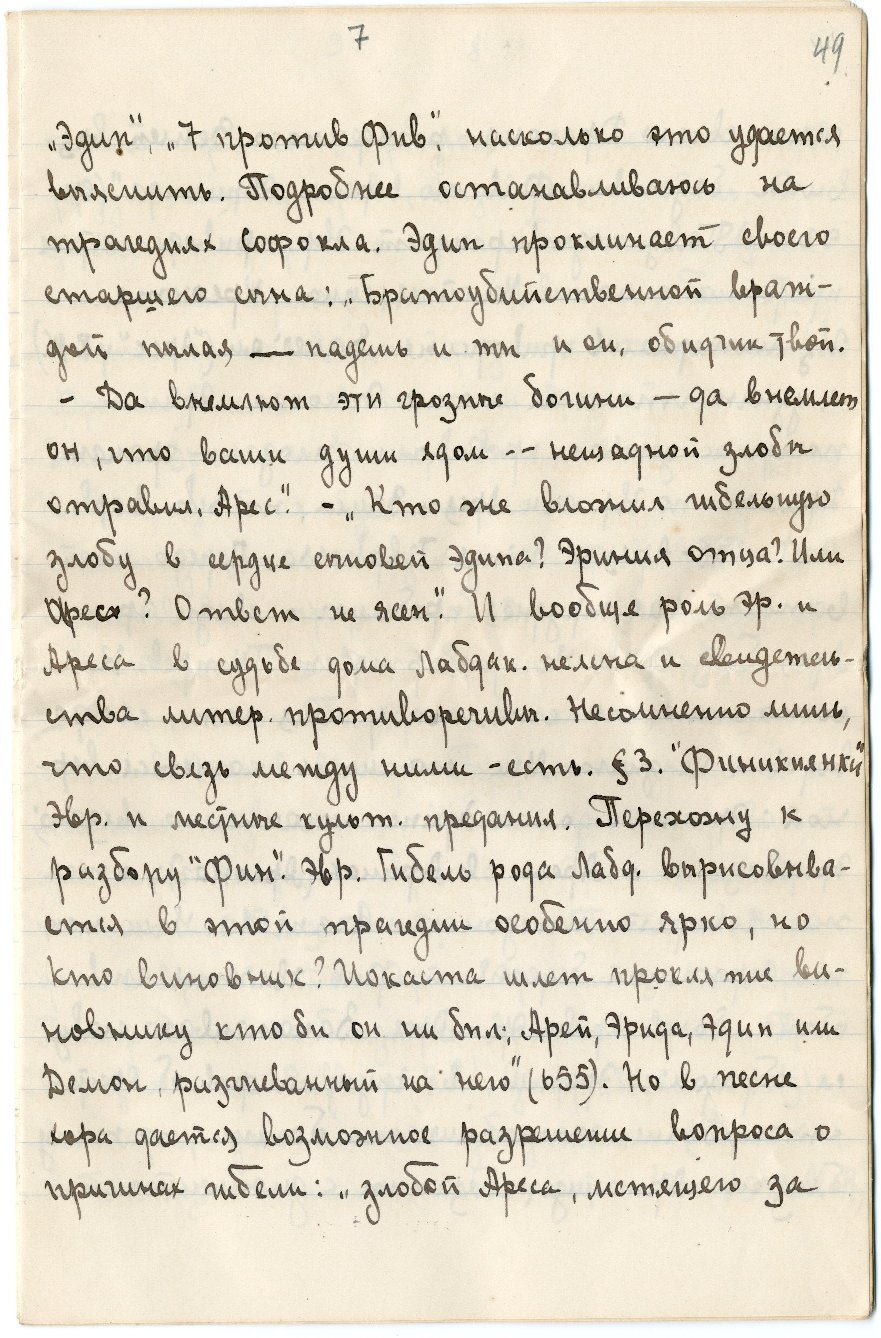 7
49
„Эдип“, „7 против Фив“, насколько это удается
выяснить. Подробнее останавливаюсь на
трагедиях Софокла. Эдип проклинает своего
старшего сына: „Братоубийственной враж-
дой пылая — падешь и ты и он, обидчик твой.
– Да внемлют эти грозные богини – да внемлет
он, что ваши души ядом -- нещадной злобы
отравил, Арес“. – „Кто же вложил гибельную
злобу в сердце сыновей Эдипа? Эриния отца? Или
Арес? Ответ не ясен“. И вообще роль Эр. и
Ареса в судьбе дома Лабдак. неясна и свидетель-
ства литер. противоречивы. Несомненно лишь,
что связь между ними – есть. § 3. "Финикиянки"
Эвр. и местные культ. предания. Перехожу к
разбору "Фин". Эвр. Гибель рода Лабд. вырисовыва-
ется в этой трагедии особенно ярко, но
кто виновник? Иокаста шлет проклятие ви-
новнику кто бы он ни был; Арей, Эрида, Эдип или
Демон, разгневанный на него" (655). Но в песне
хора дается возможное разрешение вопроса о
причинах гибели: „злобой Ареса, мстящего за